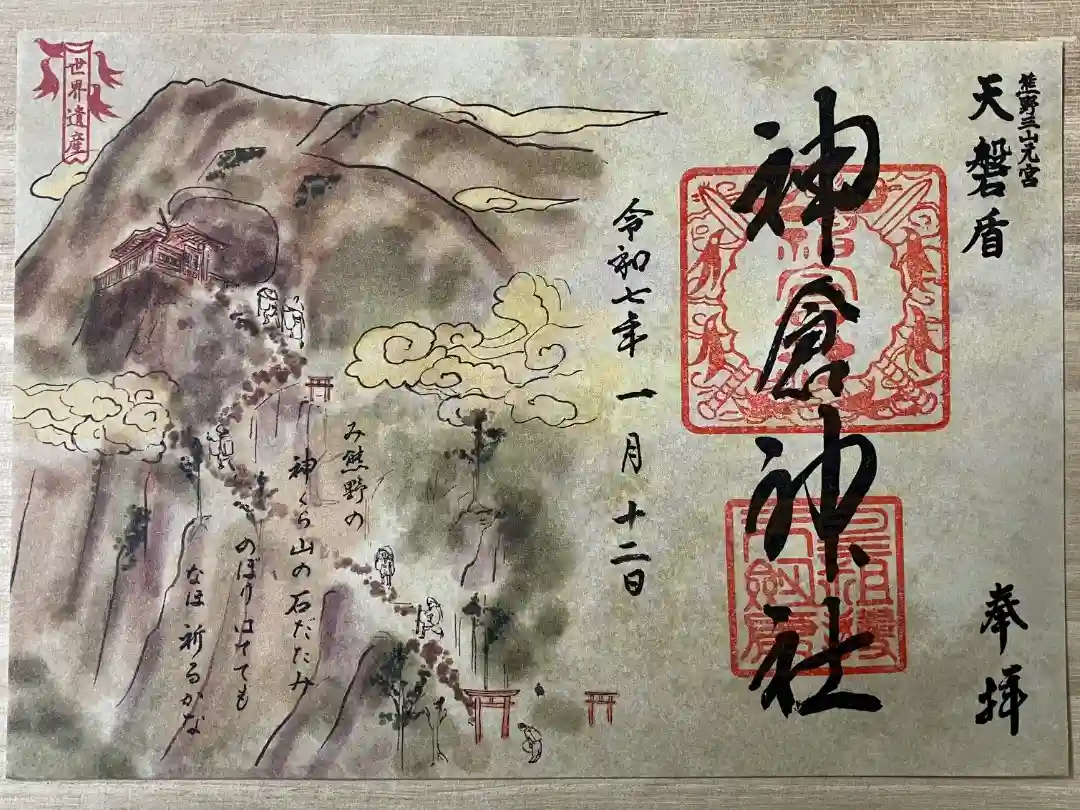 熊野三山元宮
天磐盾
奉拝
神倉神社
令和七年 一月十二日
み熊野の
神くら山の石だたみ
のぼりはてても
なほ祈るかな
世界遺産